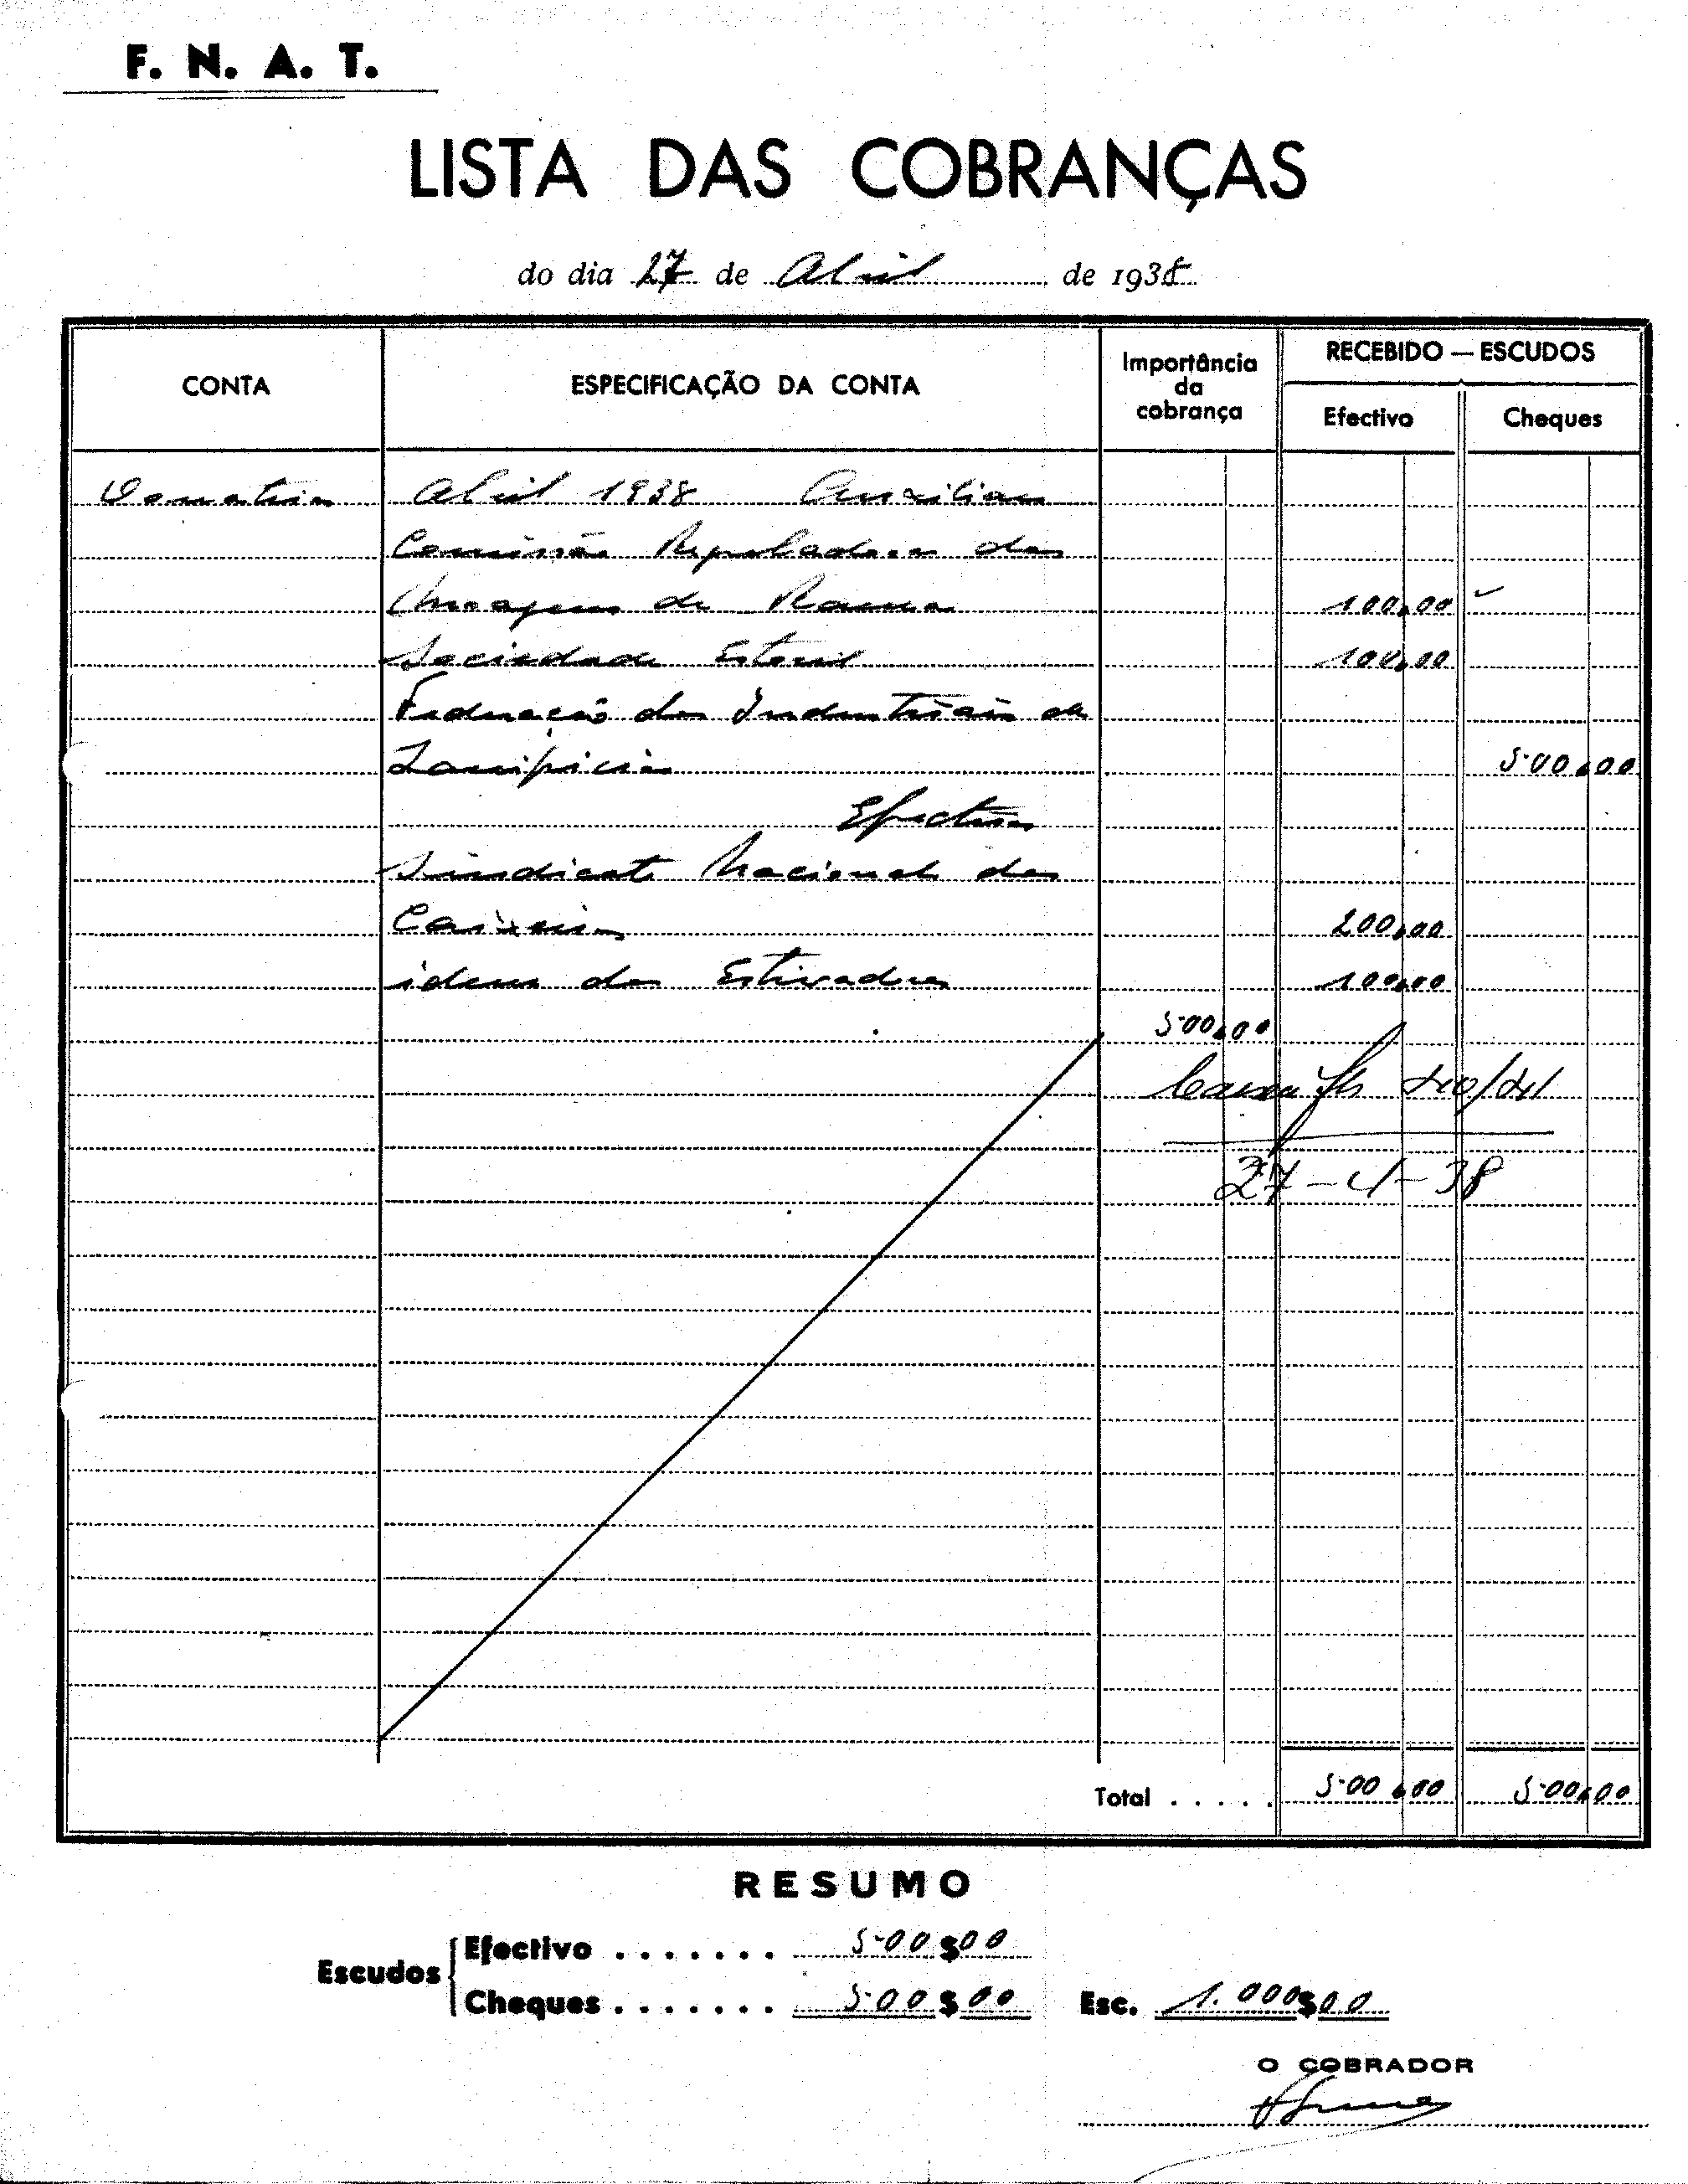 F. N. A. T.
LISTA DAS COBRANÇAS
do dia 27 de Abril de 1938
CONTA
ESPECIFICAÇÃO DA CONTA
Importância
da
cobrança
RECEBIDO — ESCUDOS
Efectivo
Cheques
Abril 1938 Auxiliares
Comissão Reguladora das
Moagens de Rama 100,00
Sociedade Estoril 100,00
Federação dos Industriais de
Lanifícios 500,00
Efectivos
Sindicato Nacional dos
Caixeiros 200,00
idem dos Estivadores 100,00
500,00
Caixa fls 40/41
27-4-38
Total . . . . . 500,00 500,00
RESUMO
Escudos
Efectivo . . . . . . . 500$00
Cheques . . . . . . . 500$00 Esc. 1.000$00
O COBRADOR